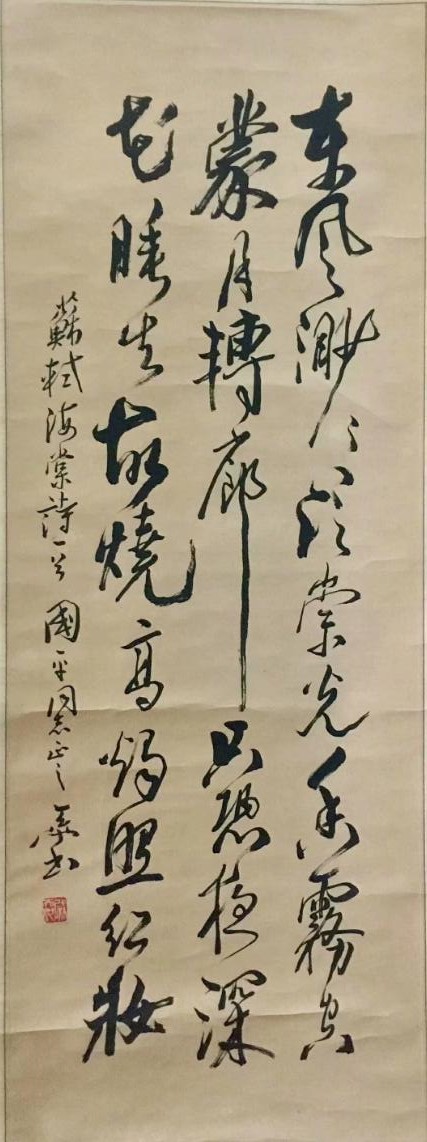 東風渺渺泛崇光香霧空
蒙月轉廊只恐夜深
花睡去故燒高燭照紅妝
蘇軾海棠詩一首 國平同志正之 書